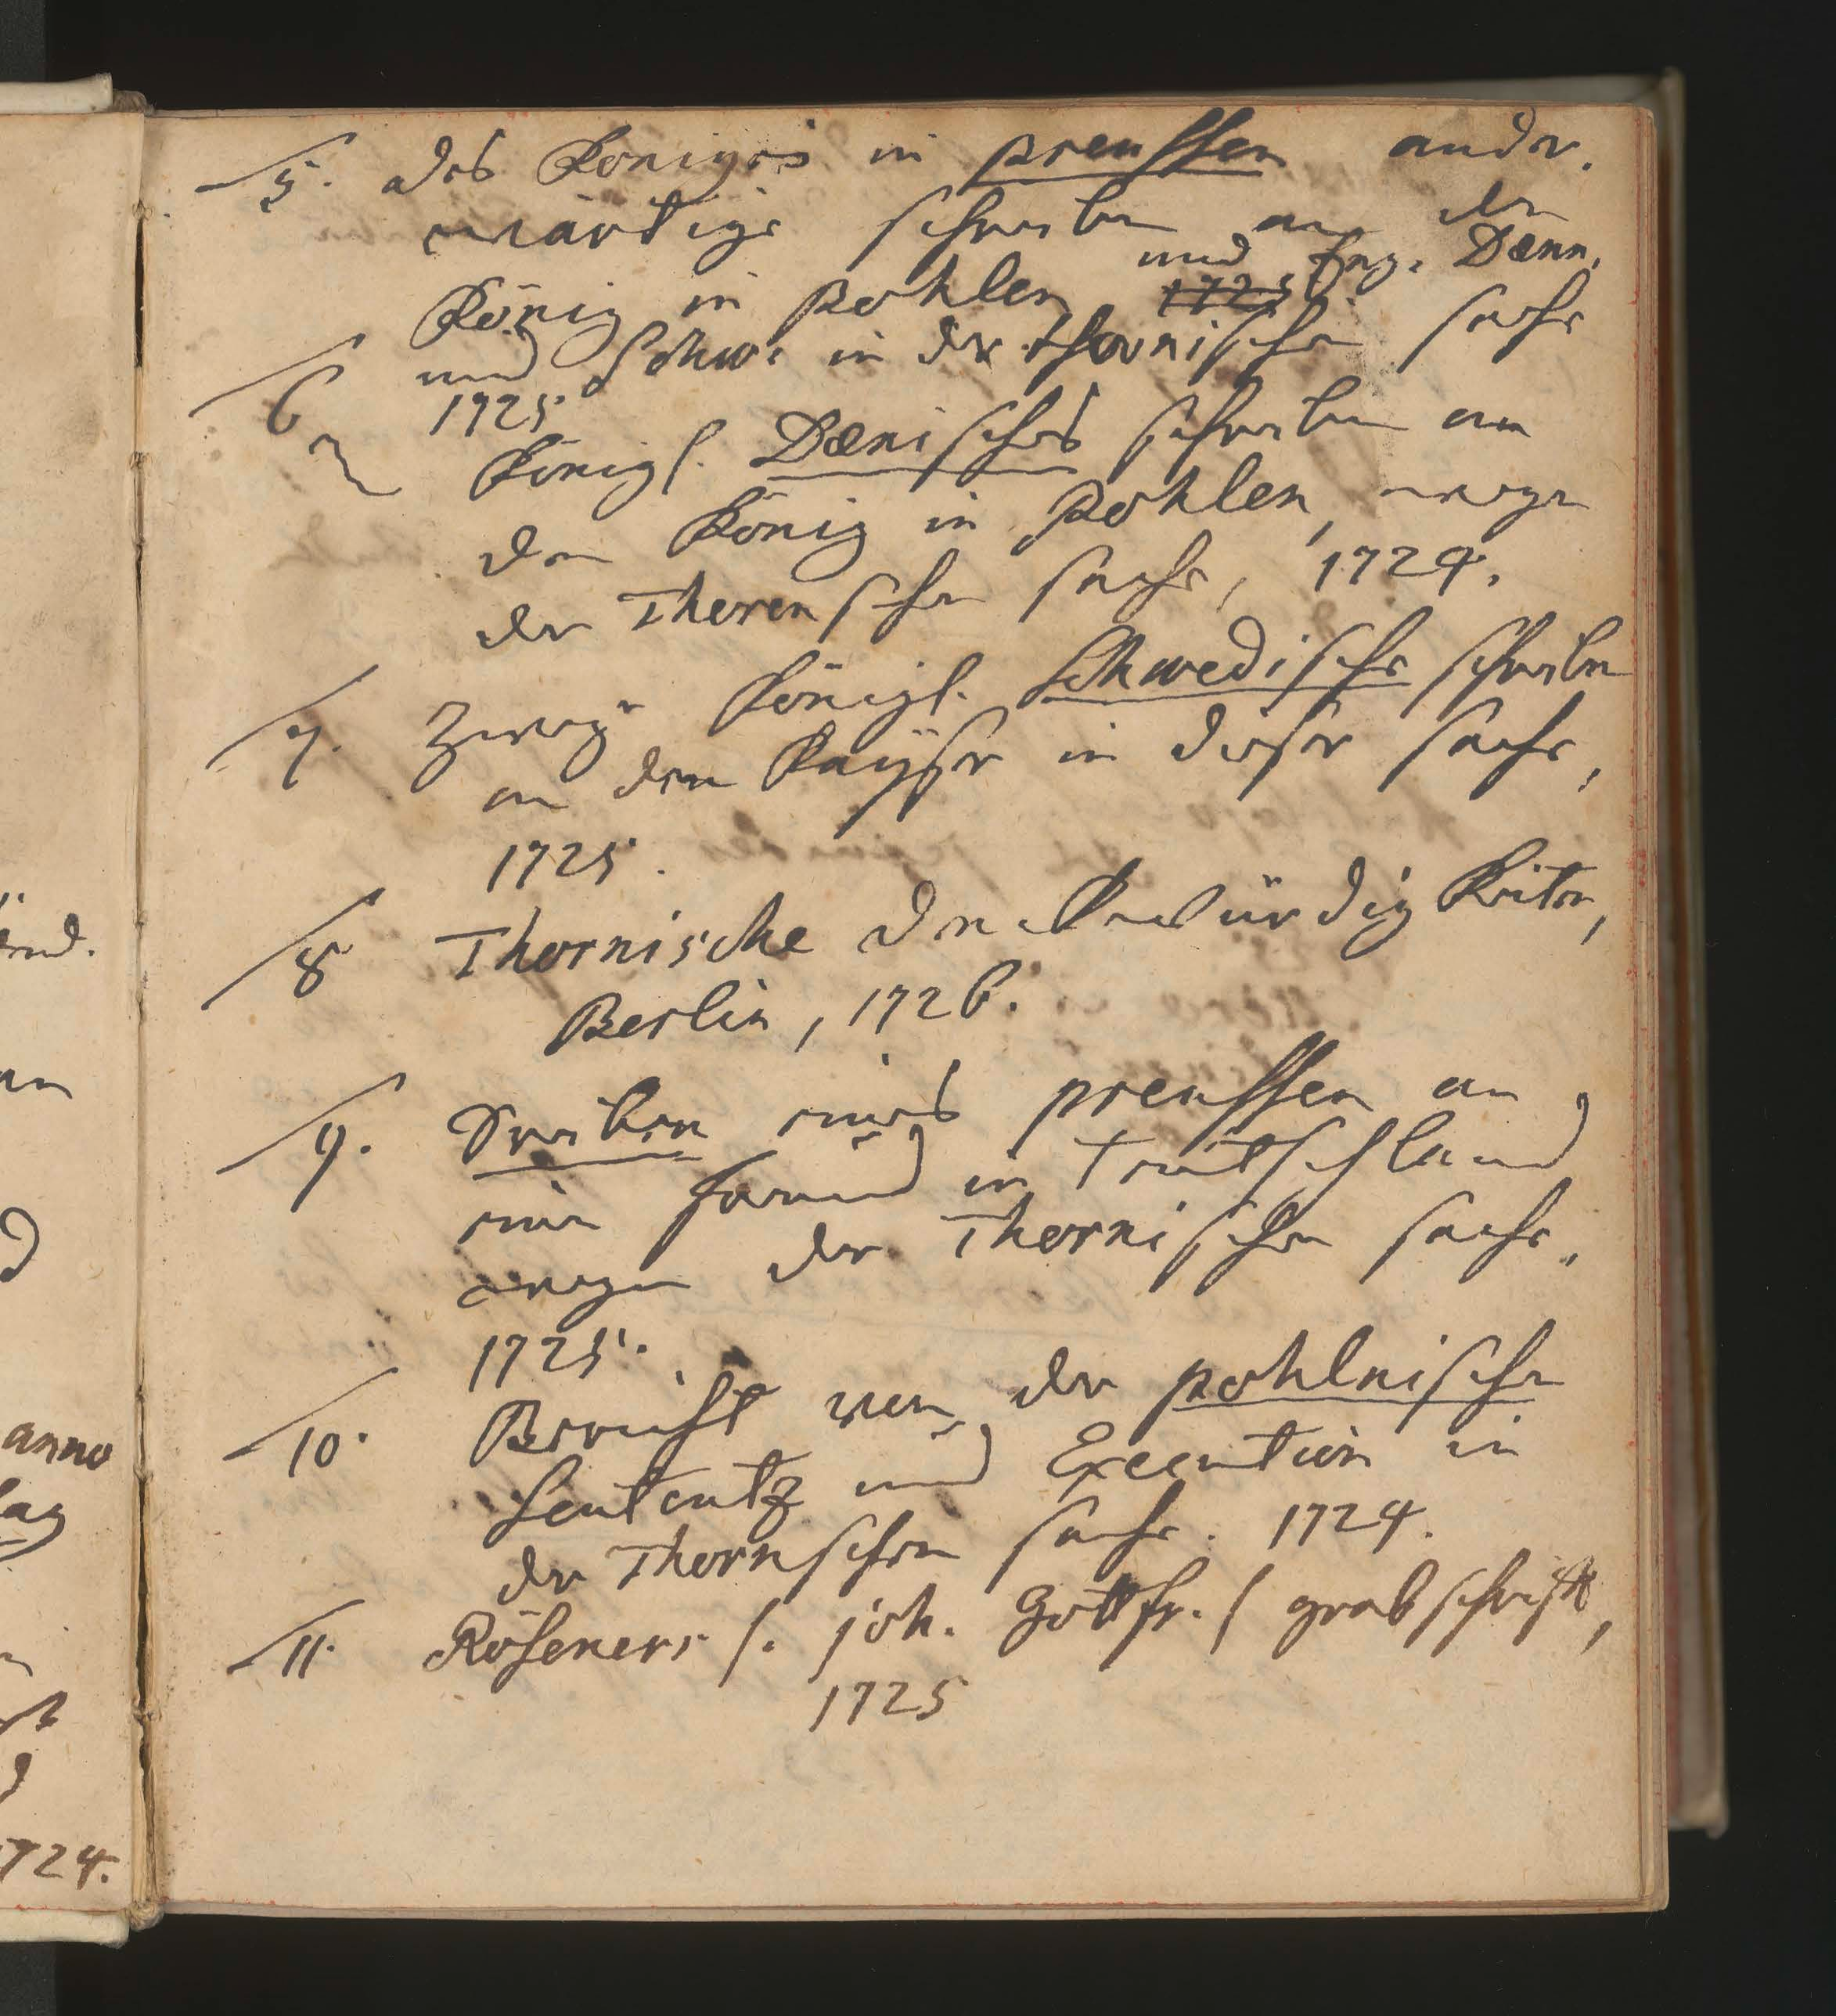 5. des Königes in Preussen ander-
wärtige schreiben an den
König in Pohlen 1725 und Eng. Dænn.
und Schw. in der Thornischen sache
1725
6 Königl. Dænisches schreiben an
den König in Pohlen, wegen
der Thorenschen sache, 1724.
7. Zweye Königl. Schwedische schreiben
an den Kayser in dieser sache,
1725.
8 Thornische Denckwürdigkeiten,
Berlin, 1726.
9. Schreiben eines Preussen an
einen freund in Teutschland
wegen der Thornischen sache.
1725.
10. Bericht von der pohlnischen
Sententz und Execution in
der Thornschen sache. 1724.
11. Röseners /. Joh. Gottfr. / grabschrifft,
1725
end.
anno
1724.